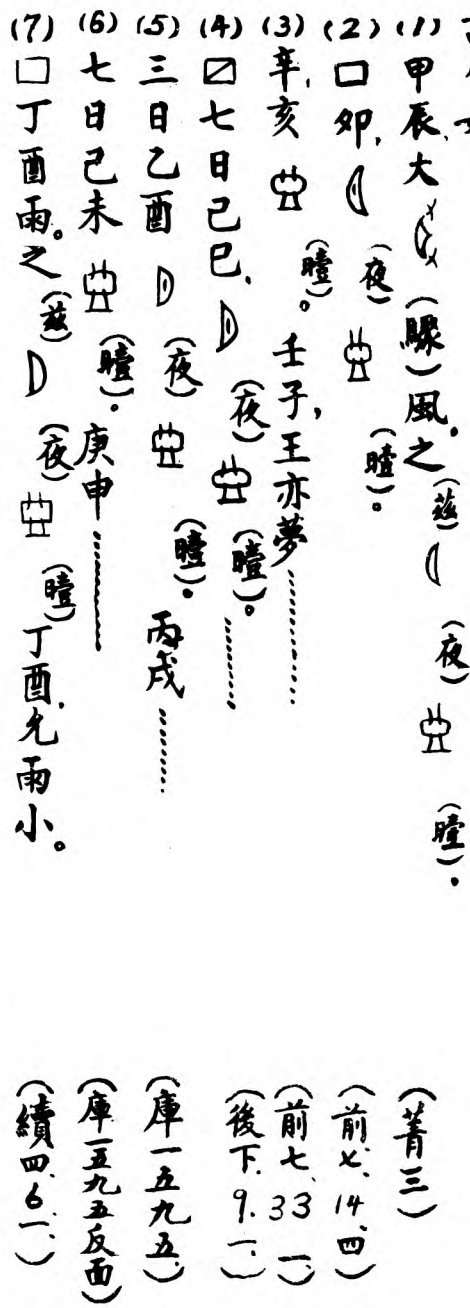 (1) 甲辰大(驟)風。之(茲)(夜)(曀)。(菁三)
(2) 囗卯,(夜)(曀)。(前七、14、四)
(3) 辛亥(曀)。壬子,王亦夢…………(前七、33、一)
(4) 〼七日己巳、(夜)(曀)。…………(後下、9、一、)
(5) 三日乙酉(夜)(曀)。丙戌…………(庫一五九五、)
(6) 七日己未(曀)。庚申…………(庫一五九五反面)
(7) 囗丁酉雨。之(茲)(夜)(曀)丁酉,允雨小。(續四、6、一、)